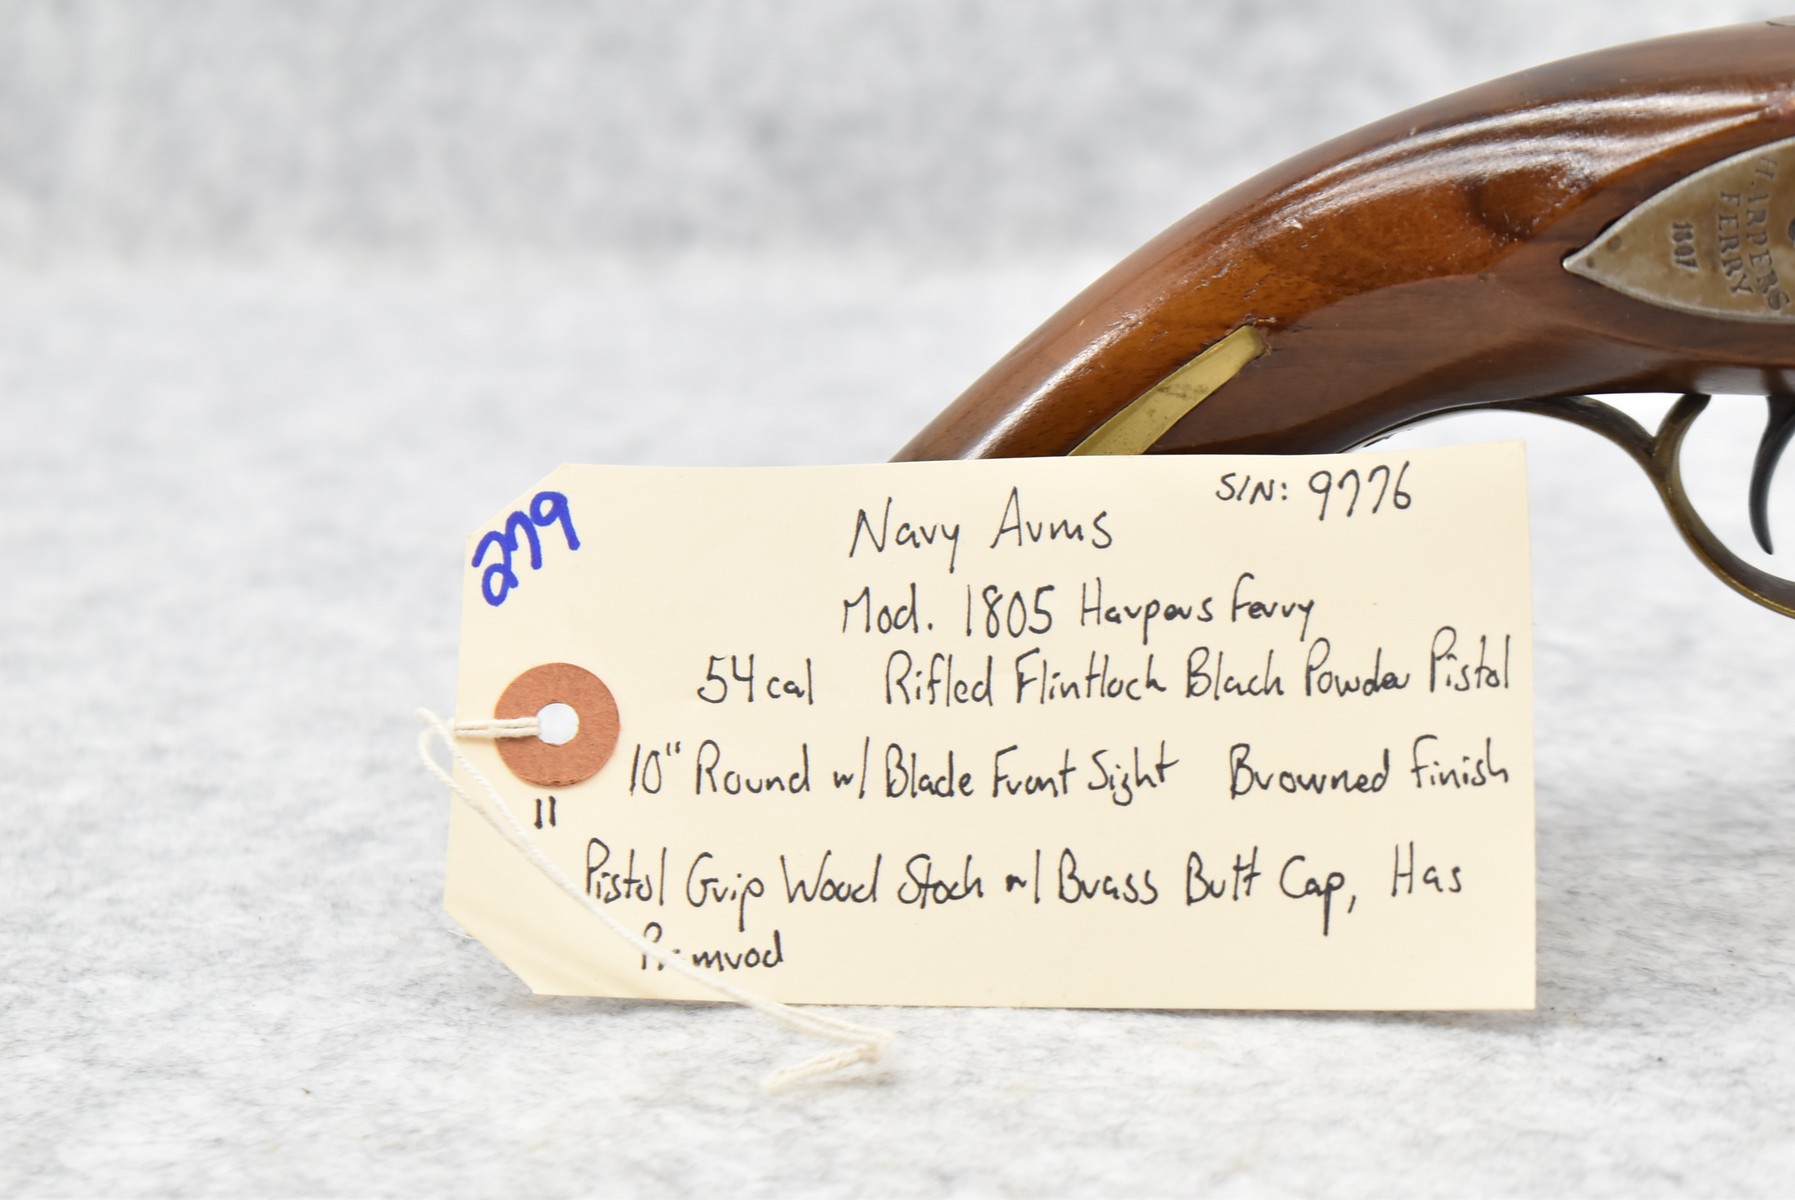 279
S/N: 9776
Navy Arms
Mod. 1805 Harpers Ferry
54 cal Rifled Flintlock Black Powder Pistol
10" Round w/ Blade Front Sight Browned Finish
11
Pistol Grip Wood Stock w/ Brass Butt Cap, Has
Ramrod
HARPERS
FERRY
1807